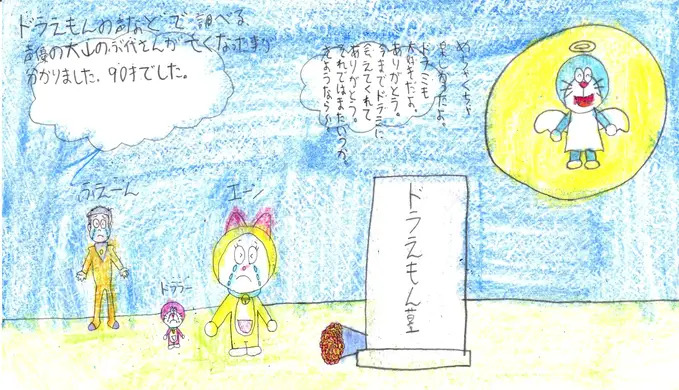 ドラえもんの声などで調べる
声優の大山のぶ代さんが亡くなった事が
分かりました。90才でした。
めちゃくちゃ
たのしかったよ。
ドラミも
大好きだよ。
ありがとう。
今までドラミに
会えてくれて
ありがとう。
それではまたいつか。
さようなら〜
ふえーん
ドララー
エーン
ドラえもん墓